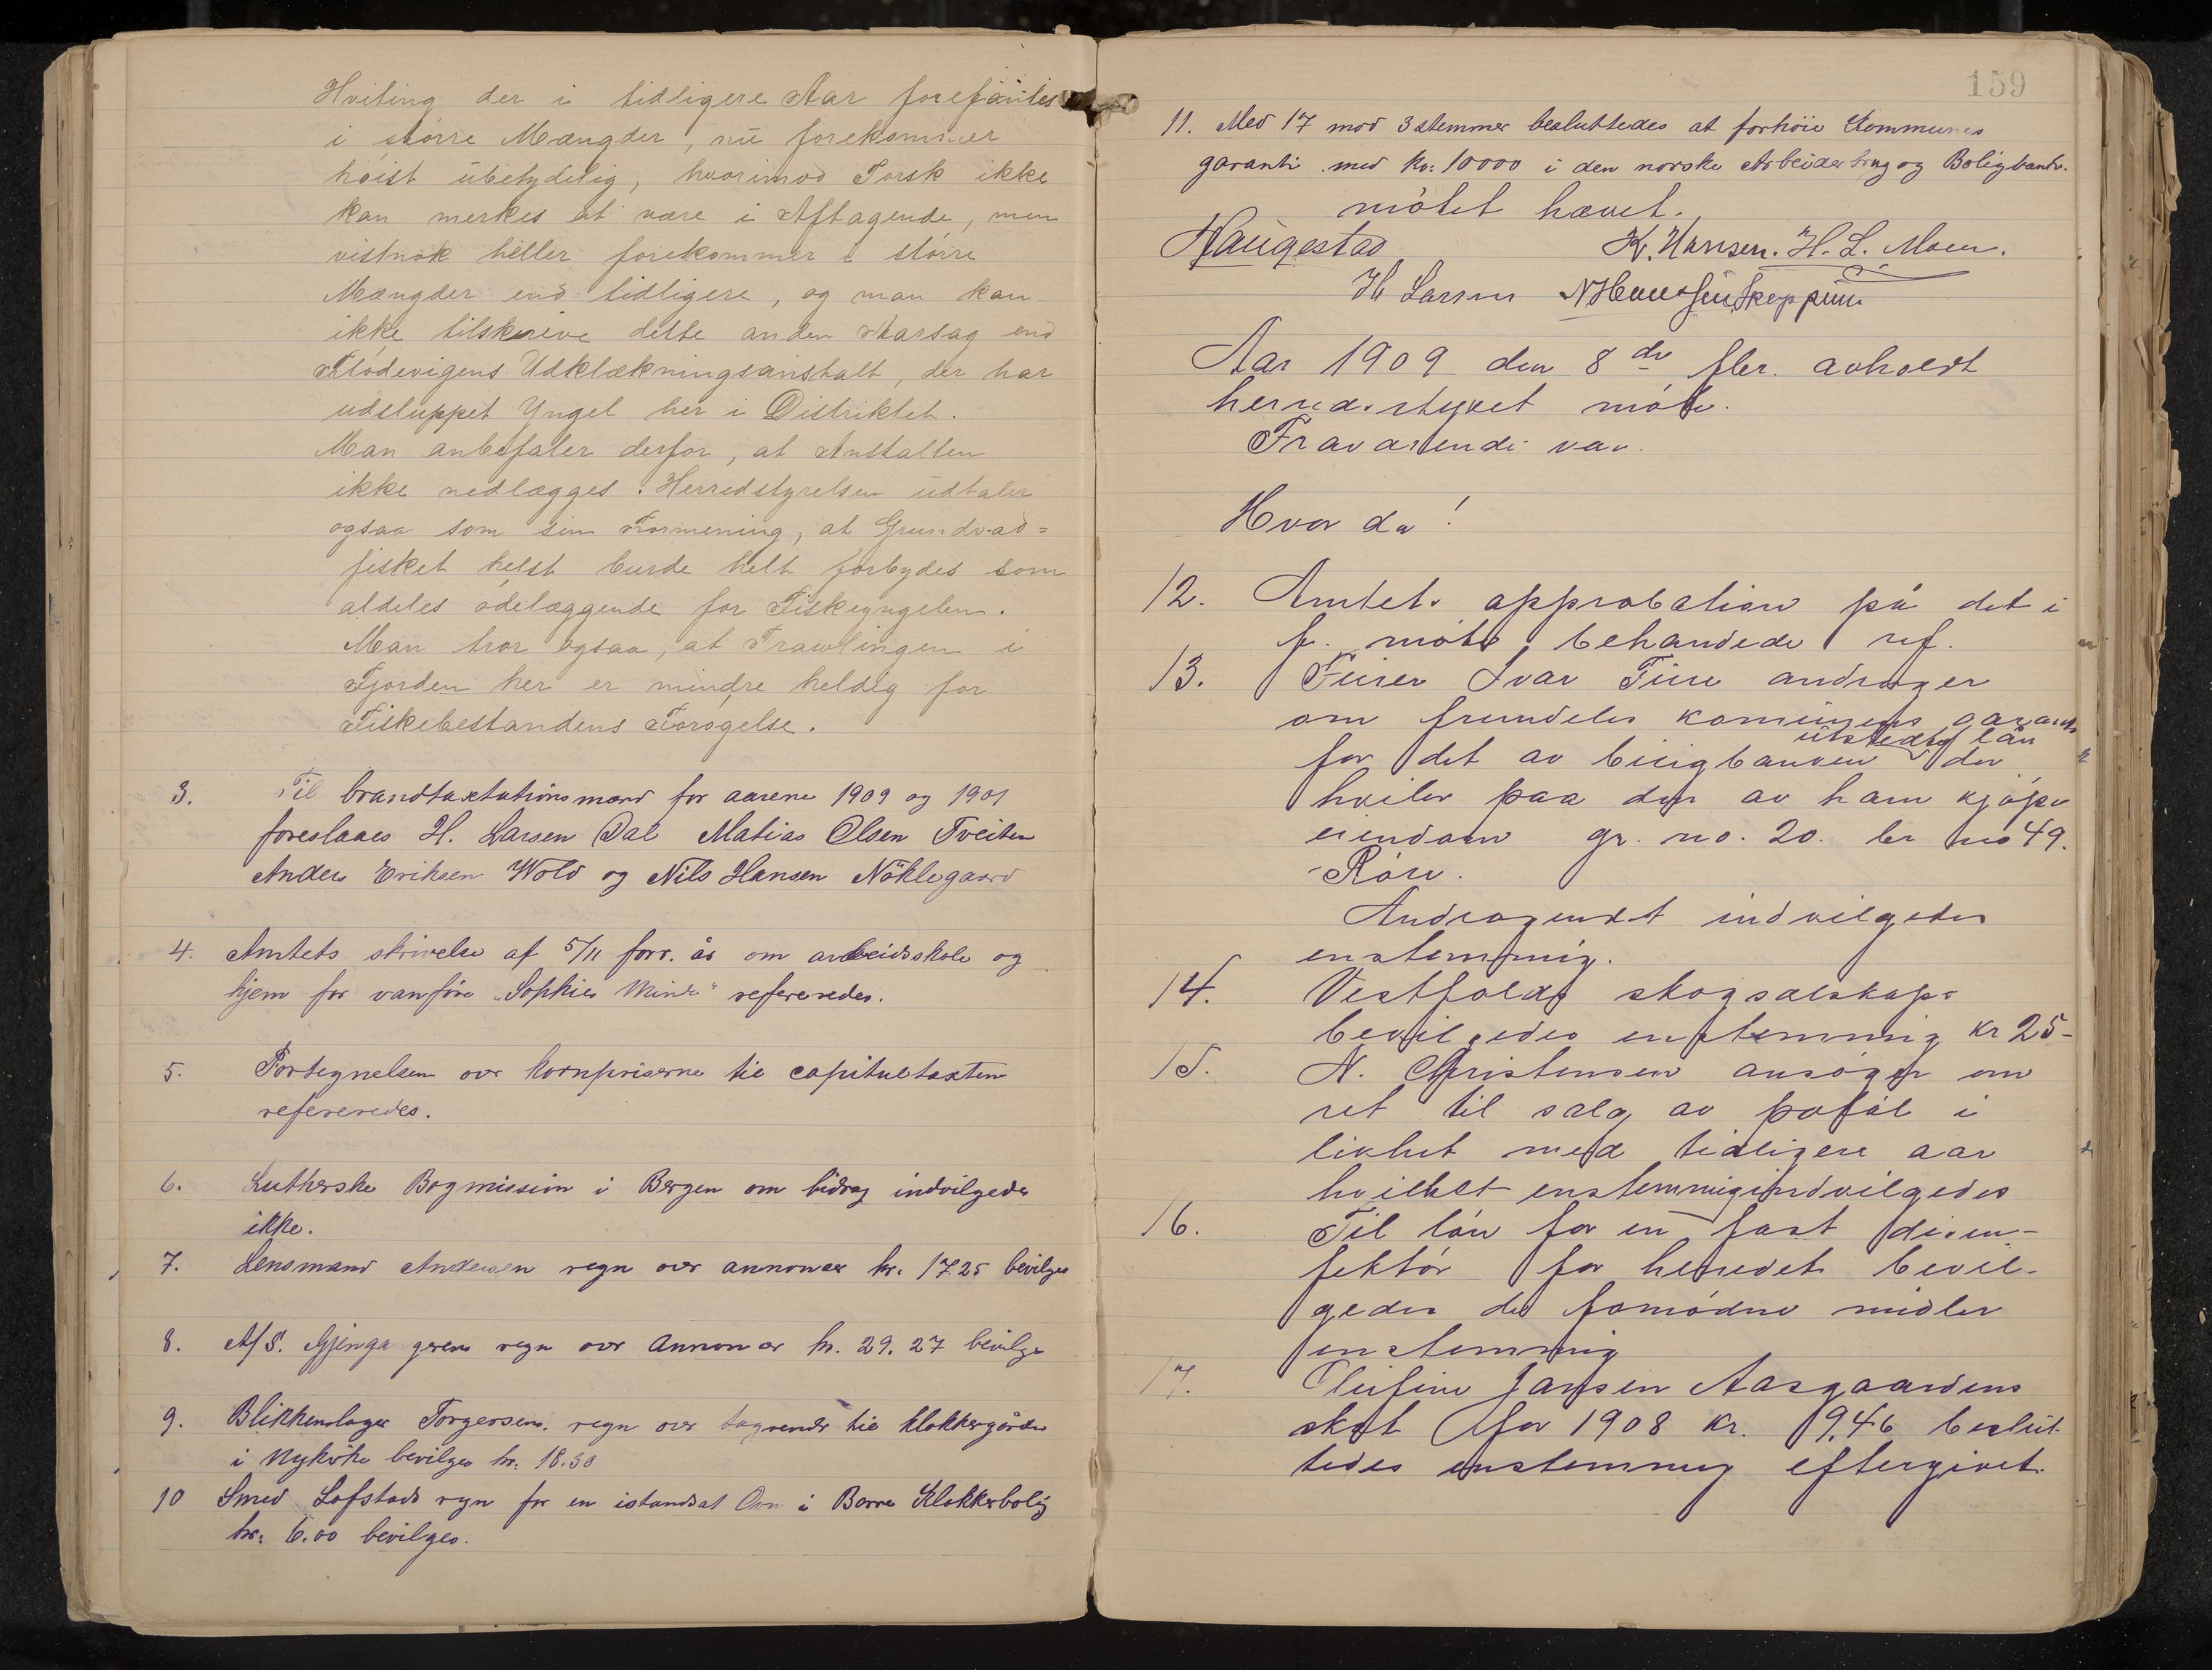 Hviting der i tidligere Aar forefantes
i större Mængder, nu forekommer
höist ubetydelig, hvorimod Torsk ikke
kan merkes at være i Aftagende, men
vistnok heller forekommer i större
Mængder end tidligere, og man kan
ikke tilskrive dette anden Aarsag end
Flödevigens Udklækningsanstalt, der har
udsluppet Yngel her i Distriktet.
Man anbefaler derfor, at Anstalten
ikke nedlægges. Herredstyrelsen udtaler
ogsaa som sin Formening, at Grundvad=
fisket helst burde helt forbydes som
aldeles ödelæggende for Fiskeyngelen.
Man tror ogsaa, at Trawlingen i
Fjorden her er mindre heldig for
Fiskebestandens Forögelse.
3. Til brandtaxtationsmænd for aarene 1909 og 1901
foreslaaes H. Larsen Dal Matias Olsen Tveiten
Anders Eriksen Wold og Nils Hansen Nöklegaard
4. Amtets skrivelse af 5/11 forr. år om arbeidsskole og
hjem for vanföre "Sophies Minde" refereredes.
5. Fortegnelsen over kornpriserne til capitueltaxten
refereredes.
6. Lutherske Bogmission i Bergen om bidrag indvilgedes
ikke.
7. Lensmand Andersen regn over annoncer kr. 17.25 bevilges
8. A/S. Gjengangerens regn over Annoncer kr. 29.27 bevilges
9. Blikkenslager Torgersens. regn over tagrender til klokkergården
i Nykirke bevilges kr. 18.50
10 Smed Lofstads regn for en istandsat Ovn i Borre Klokkerbolig
kr: 6.00 bevilges.
159
11. Med 17 mod 3 stemmer besluttedes at forhöie Kommunes
garanti med kr: 10000 i den norske Arbeiderbrug og Boligbank.
mötet hævet.
Haugestad K. Hansen. H. L. Moen.
H Larsen N Hansen Skoppum
Aar 1909 den 8de fbr. avholdt
herredsstyret möte.
Fraværende var.
Hvor da!
12. Amtets approbation på det i
f. möte behandlede ref.
13. Feier Ivar Fure andrager
om fremdeles kommunens garanti
for det av boligbanken utstedte lån der
hviler paa den av ham kjöpte
eiendom gr. no. 20. br no 49.
Röre.
Andragendet indvilgedes
enstemmig.
14. Vestfolds skogselskap
bevilgedes enstemmig kr 25-
15. N. Christensen ansöger om
ret til salg av pottöl i
likhet med tidligere aar
hvilket enstemmig indvilgedes
16. Til lön for en fast disin-
fektör for herredet bevil-
gedes de fornödne midler
enstemmig
17. Olufine Jansen Aasgaardens
skat for 1908 kr. 19.46 beslut-
tedes enstemmig eftergivet.